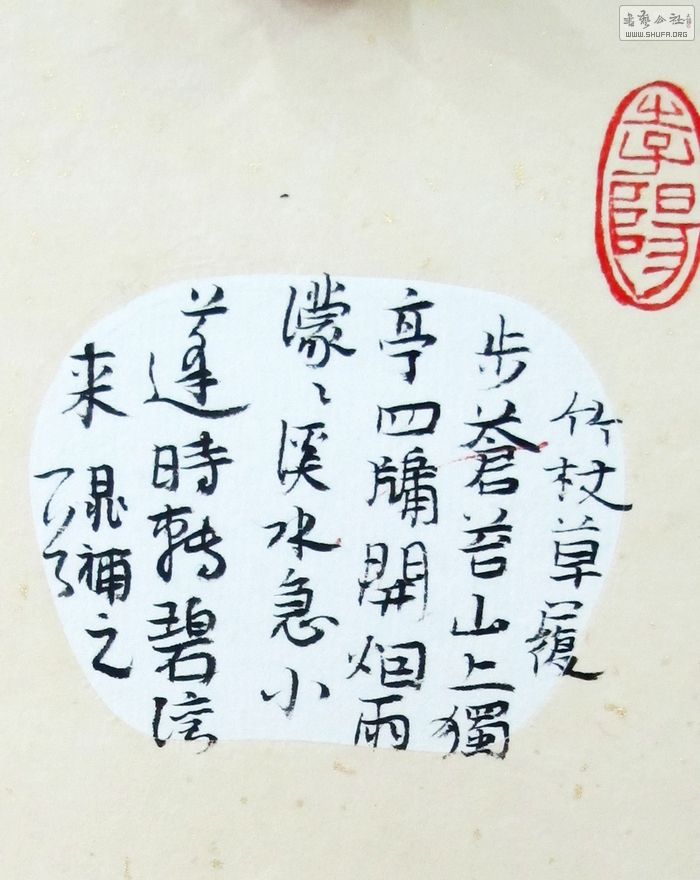 竹杖草履
步蒼苔山上獨
亭四牖開烟雨
濛〻溪水急小
蓬時轉碧
来
晁禰之
書藝公社
WWW.SHUFA.ORG